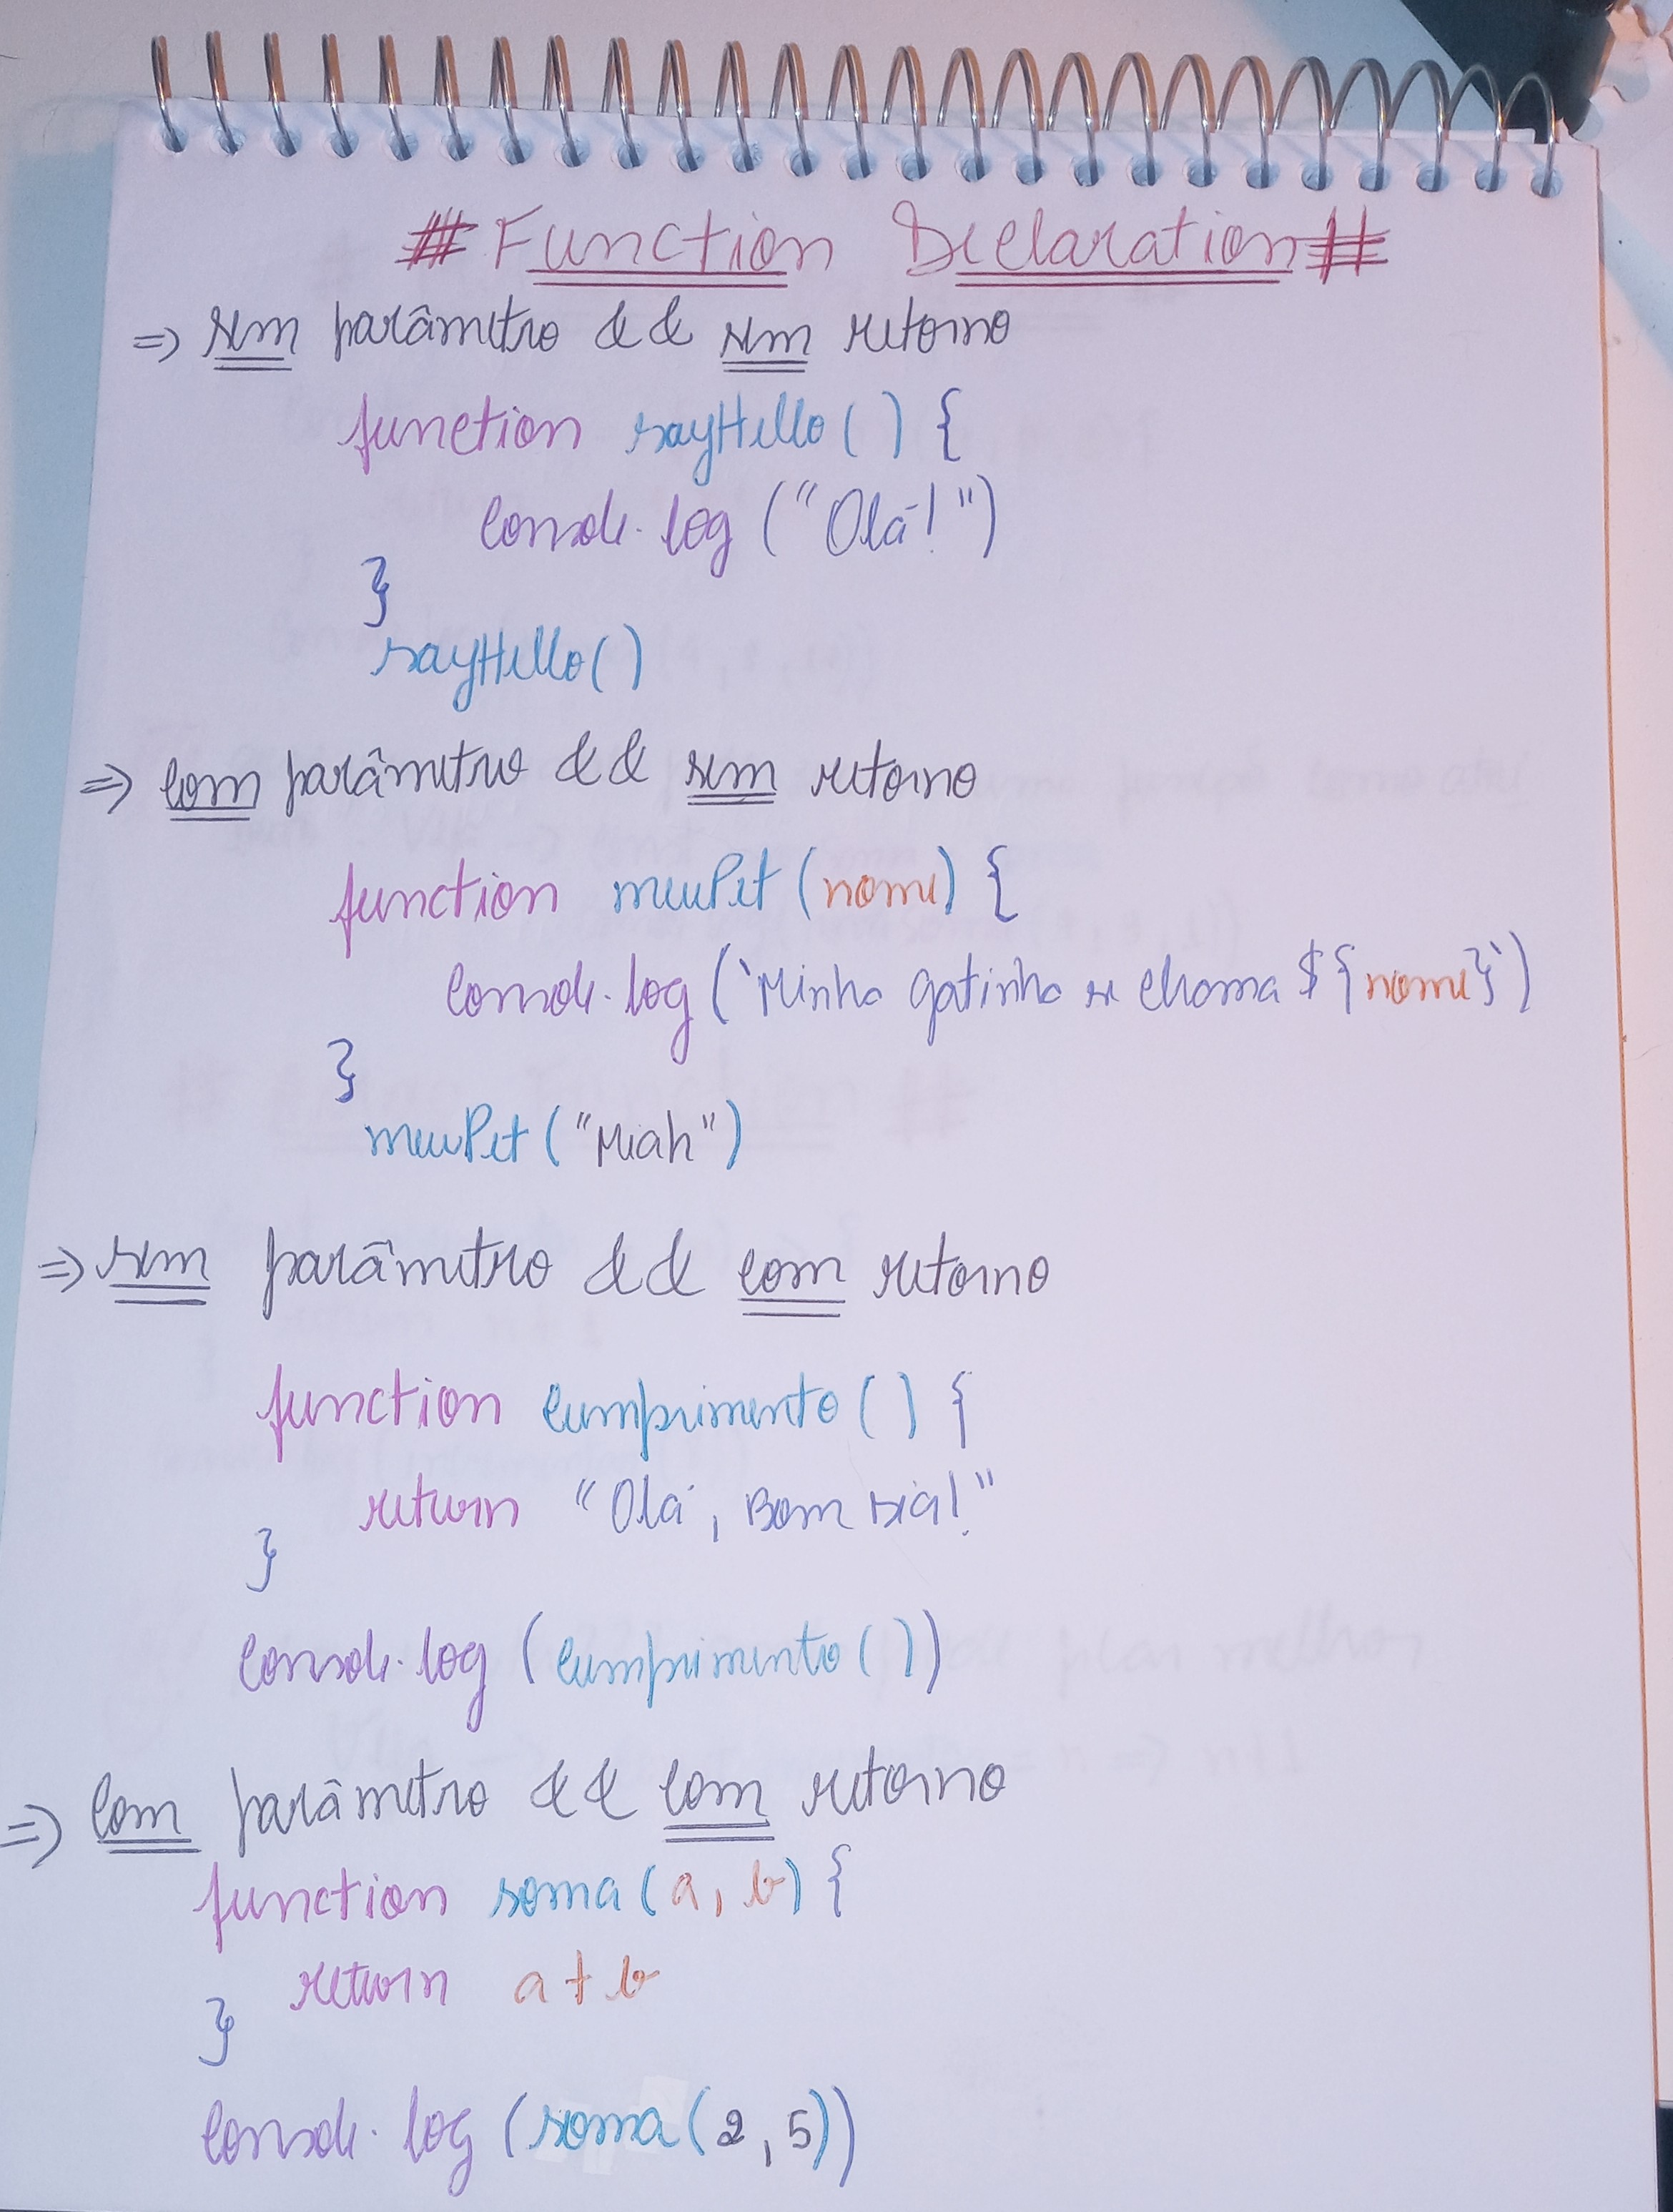 # Function Declaration #
=> sem parâmetro && sem retorno
function sayHello() {
console.log("Olá!")
}
sayHello()
=> com parâmetro && sem retorno
function meuPet(nome) {
console.log(`Minha gatinha se chama ${nome}`)
}
meuPet("Miah")
=> sem parâmetro && com retorno
function cumprimento() {
return "Olá, Bom Dia!"
}
console.log(cumprimento())
=> com parâmetro && com retorno
function soma(a, b) {
return a + b
}
console.log(soma(2,5))